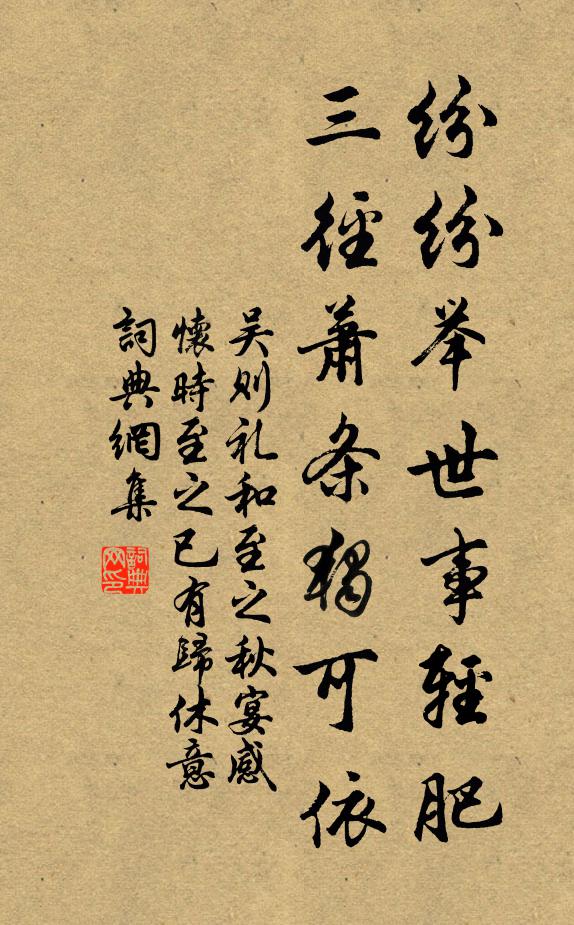 纷纷举世事輕肥
三徑蕭条獨可依
吴则礼和至之秋宴感
懷時至之已有歸休意
詞典網集
詞典网印